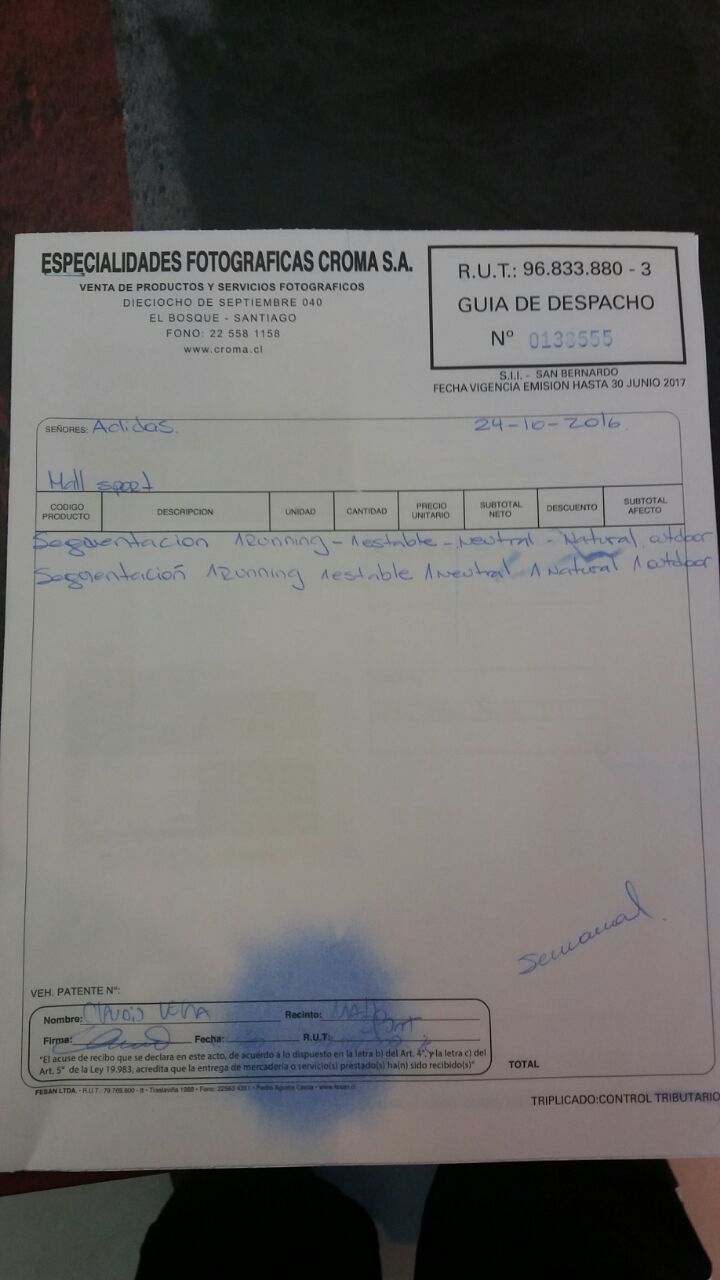 ESPECIALIDADES FOTOGRAFICAS CROMA S.A.
VENTA DE PRODUCTOS Y SERVICIOS FOTOGRAFICOS
DIECIOCHO DE SEPTIEMBRE 040
EL BOSQUE - SANTIAGO
FONO: 22 558 1158
www.croma.cl
R.U.T.: 96.833.880 - 3
GUIA DE DESPACHO
Nº 0138555
S.I.I. - SAN BERNARDO
FECHA VIGENCIA EMISION HASTA 30 JUNIO 2017
SEÑORES: Adidas. 24-10-2016.
Mall sport
CODIGO PRODUCTO DESCRIPCION UNIDAD CANTIDAD PRECIO UNITARIO SUBTOTAL NETO DESCUENTO SUBTOTAL AFECTO
Segmentacion 1 Running - 1 estable - Neutral - Natural. outdoor
Segmentación 1 Running 1 estable 1 Neutral 1 Natural 1 outdoor
semanal.
VEH. PATENTE N°:
Nombre: Claudio Recinto: Mall Sport
Firma: Fecha: R.U.T:
"El acuse de recibo que se declara en este acto, de acuerdo a lo dispuesto en la letra b) del Art. 4°, y la letra c) del
Art. 5° de la Ley 19.983, acredita que la entrega de mercadería o servicio(s) prestado(s) ha(n) sido recibido(s)"
TOTAL
FESAN LTDA. - R.U.T. 79.769.800 - Traslaviña 1988 • Fono: • Pedro Aguirre Cerda • www.fesan.cl
TRIPLICADO:CONTROL TRIBUTARIO